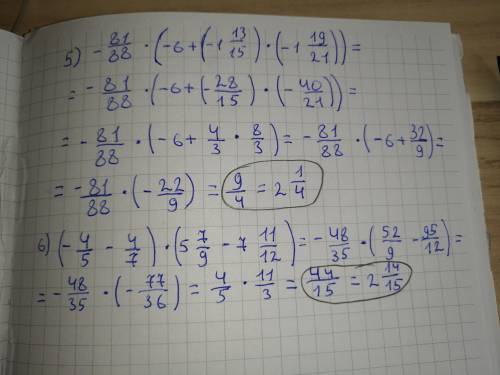 5) -81/88 · (-6 + (-1 13/15) · (-1 19/21)) =
= -81/88 · (-6 + (-28/15) · (-40/21)) =
= -81/88 · (-6 + 4/3 · 8/3) = -81/88 · (-6 + 32/9) =
= -81/88 · (-22/9) = 9/4 = 2 1/4
6) (-4/5 - 4/7) · (5 7/9 - 7 11/12) = -48/35 · (52/9 - 95/12) =
= -48/35 · (-77/36) = 4/5 · 11/3 = 44/15 = 2 14/15